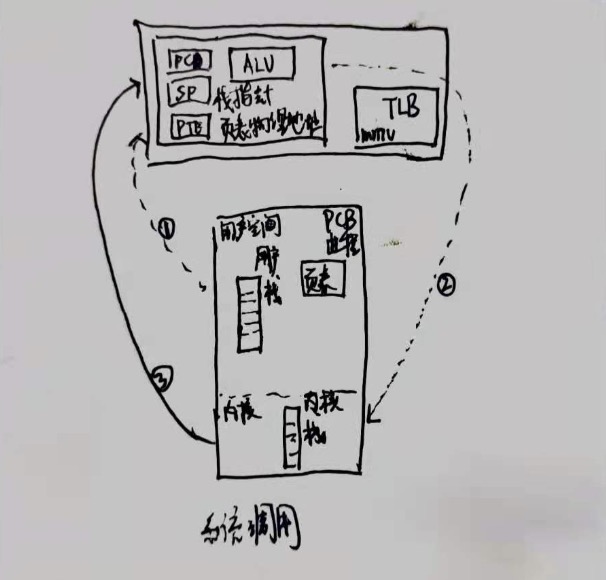 PC
ALU
SP 栈指针
PTB 页表物理地址
TLB
MMU
①
用户空间
PCB
进程
用户
栈
页表
②
③
内核
内核
栈
系统调用